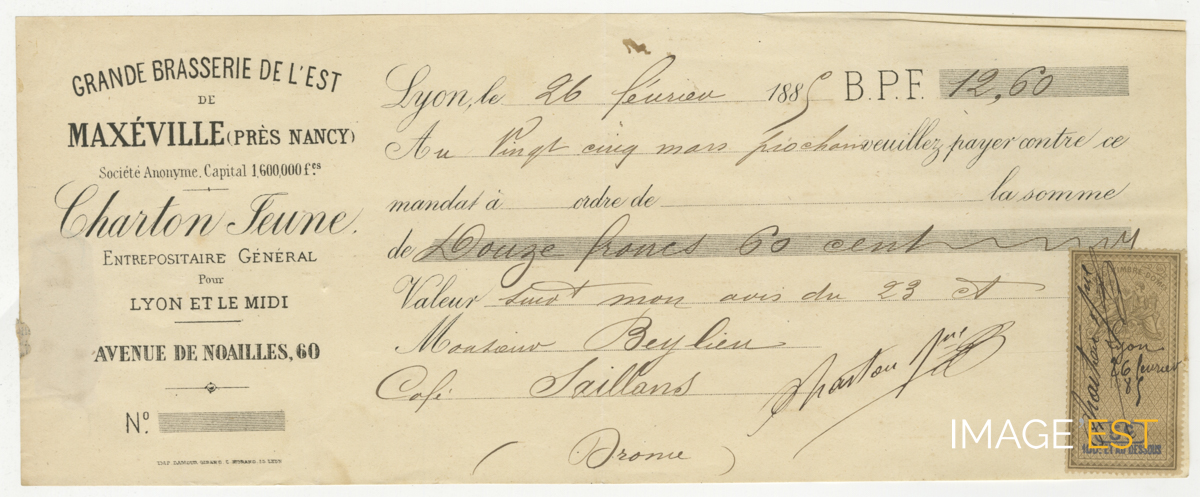 GRANDE BRASSERIE DE L'EST
DE
MAXÉVILLE (PRÈS NANCY)
Société Anonyme, Capital 1,600,000 f.cs
Charton Jeune.
ENTREPOSITAIRE GÉNÉRAL
Pour
LYON ET LE MIDI
AVENUE DE NOAILLES, 60
N°.
Lyon, le 26 février 1885 B.P.F. 12,60
Au Vingt cinq mars prochain veuillez payer contre ce
mandat à ordre de la somme
de Douze francs 60 cent
Valeur suivt mon avis du 23 ct
Monsieur Beylieu
Café Saillans
(Drome)
Charton Jne
Charton Jne
Lyon
26 février
85
100F ET AU DESSOUS
IMAGE EST